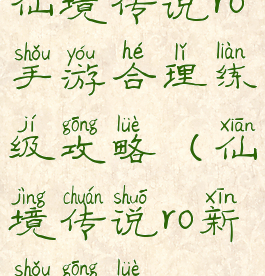 仙境传说ro
shǒu yóu hé lǐ liàn
手游合理练
jí gōng lüè xiān
级攻略（仙
jìng chuán shuō xīn
境传说ro新
shǒu gōng lüè